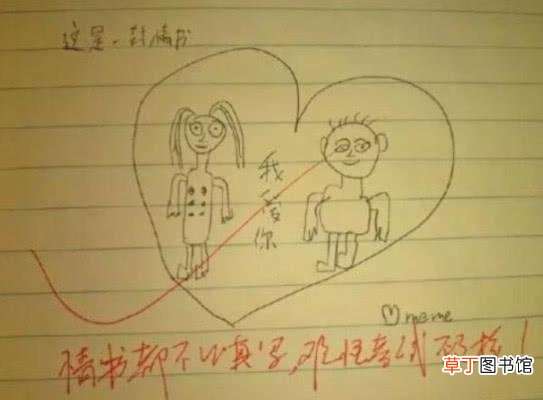 这是一封情书
我爱你
meme
情书都不认真写,难怪考试不及格!
草丁图书馆